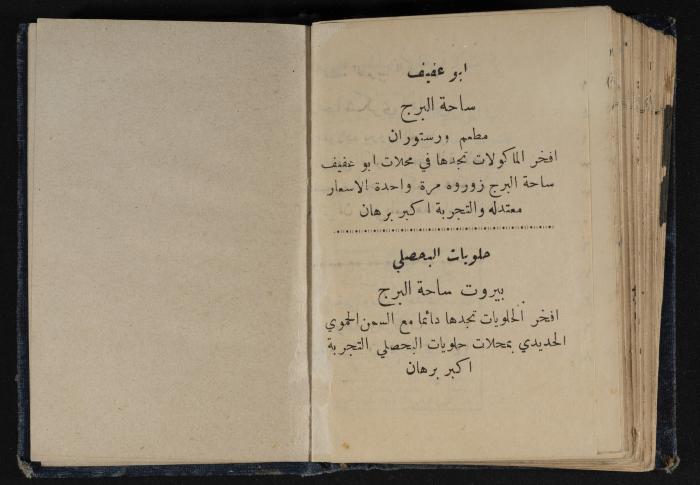 ابو عفيف
ساحة البرج
مطعم ورستوران
افخر الماكولات تجدها في محلات ابو عفيف
ساحة البرج زوروه مرة واحدة الاسعار
معتدله والتجربة اكبر برهان
حلويات البحصلي
بيروت ساحة البرج
افخر الحلويات تجدها دائما مع السمن الحموي
الحديدي بمحلات حلويات البحصلي التجربة
اكبر برهان